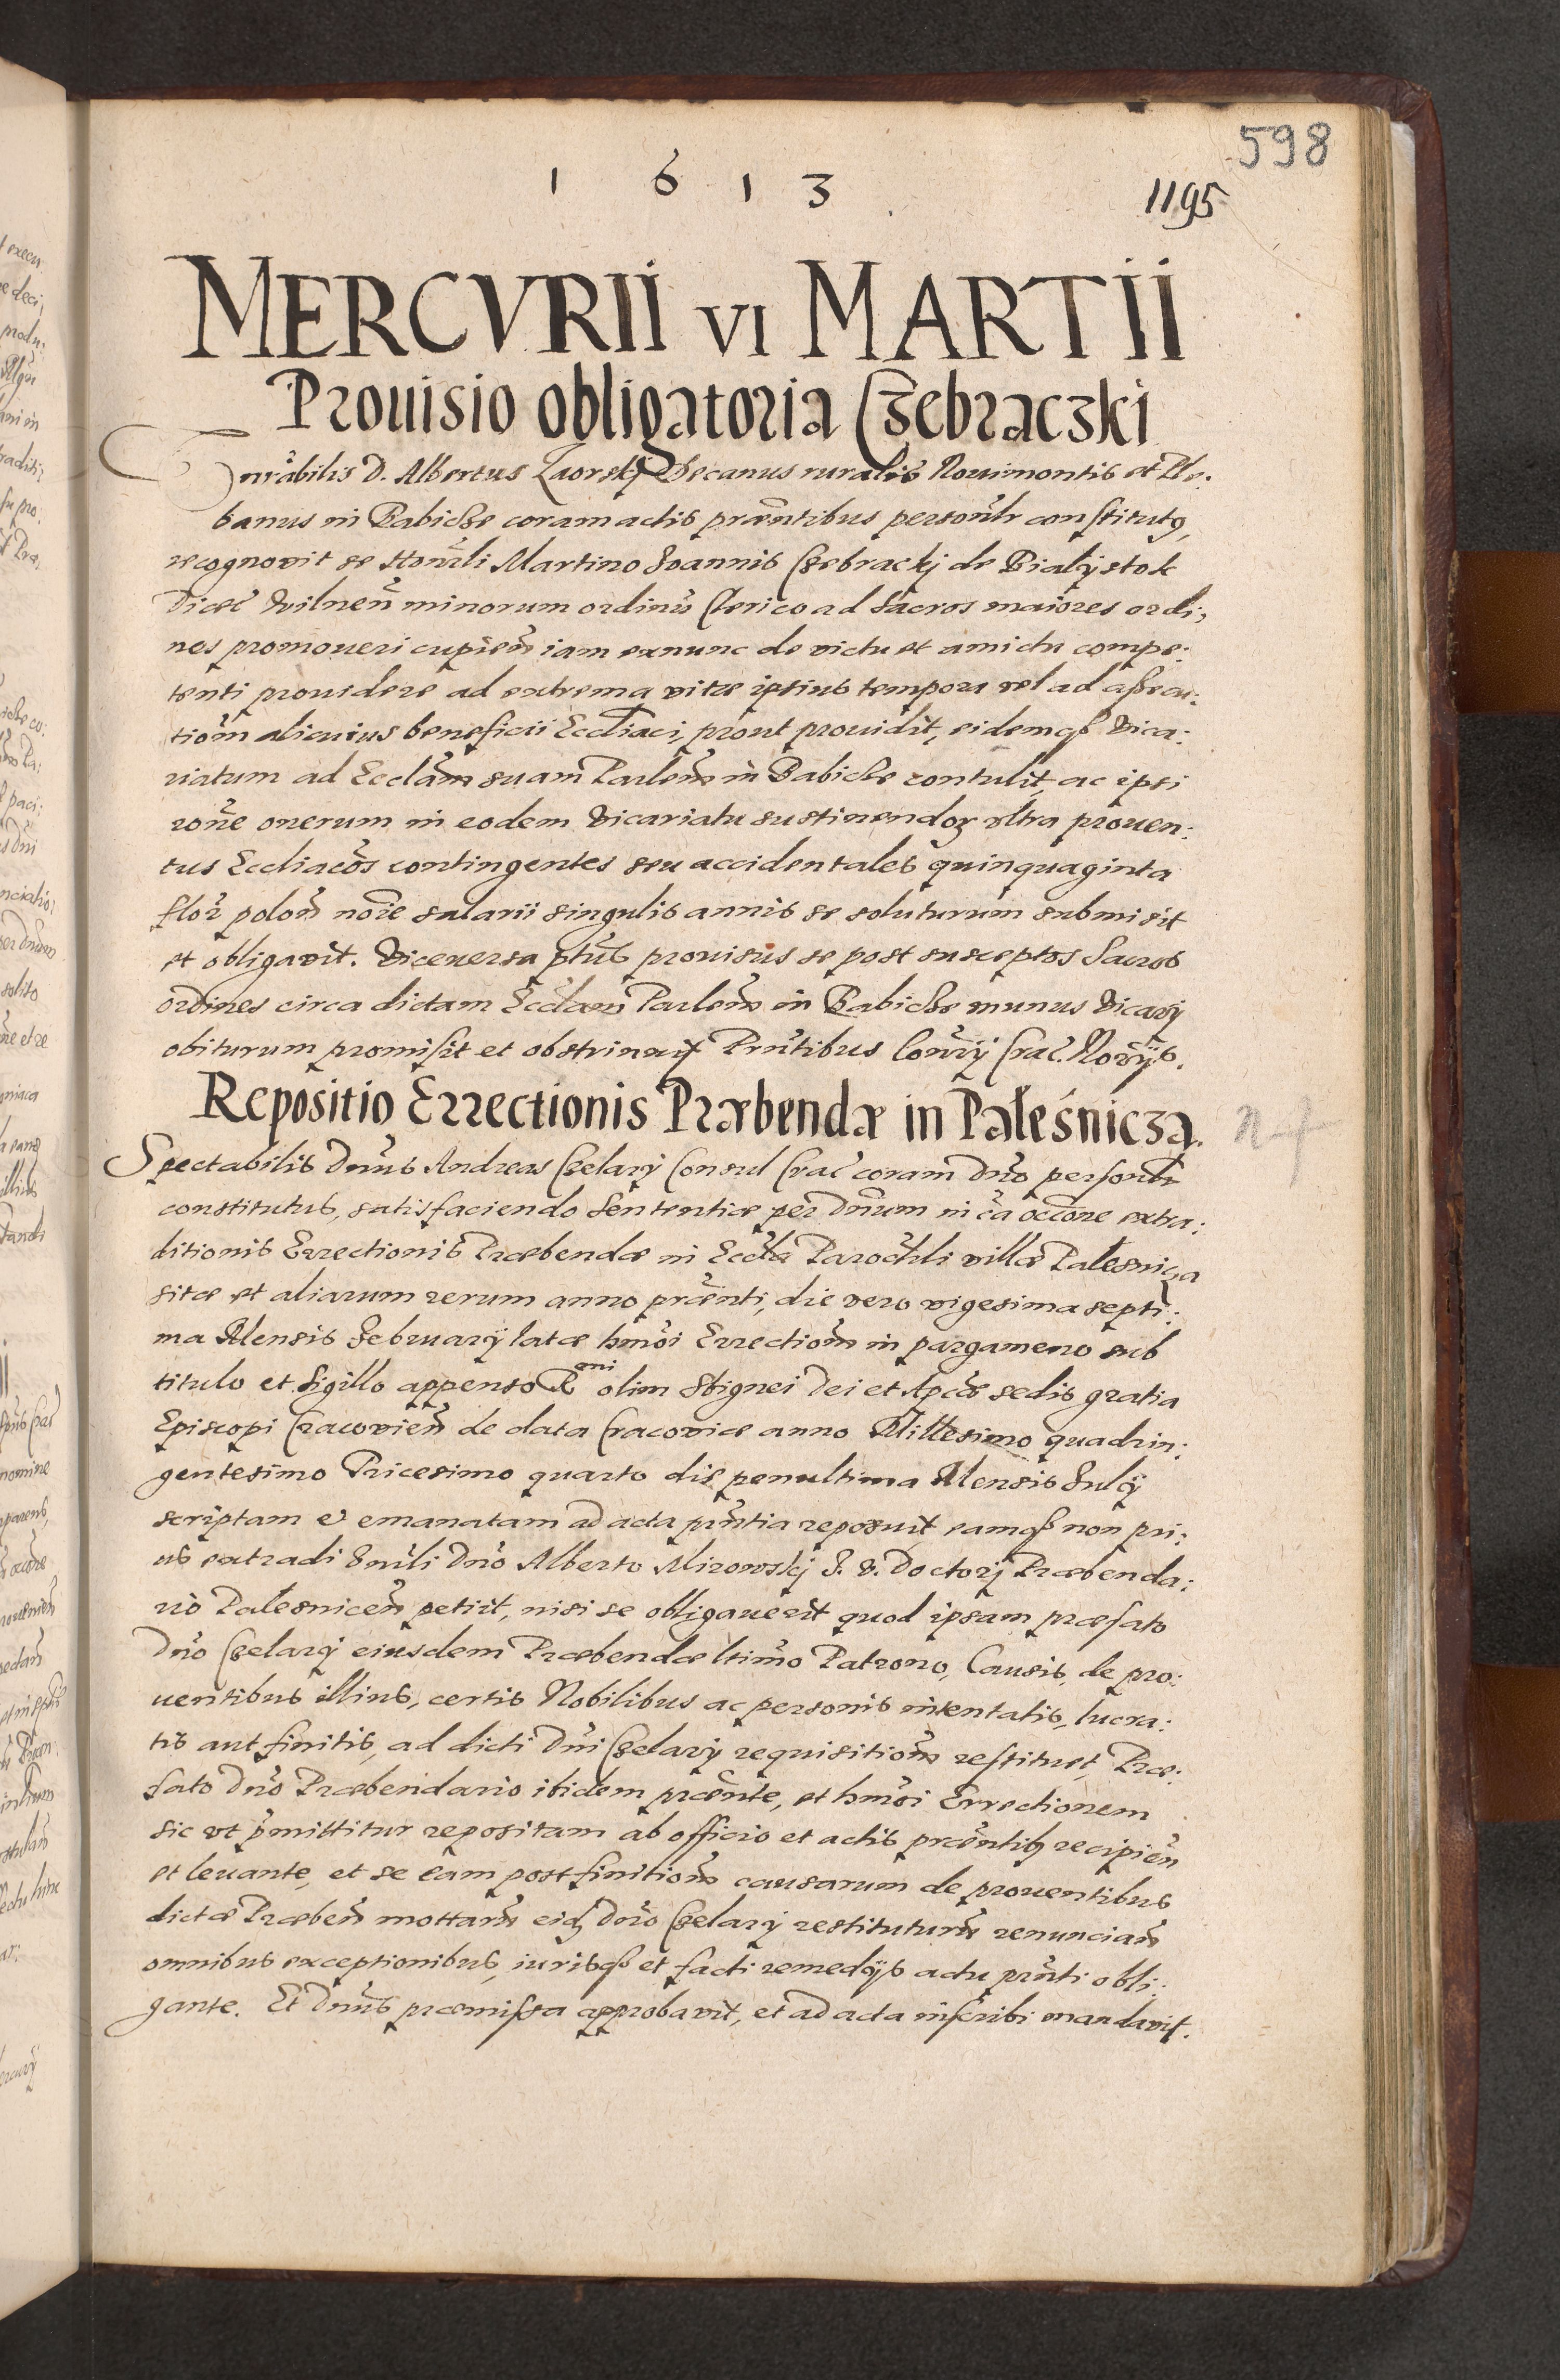 598
1 6 1 3
1195
MERCVRII VI MARTII
Prouisio obligatoria Czebraczki
Vnrãbilis D. Albertus Zaorskj Decanus ruralis Nouimontis et Ple:
banus in Babicze coram actis præntibus personłr constitutg,
recognovit se Honrãli Martino Joannis Czebrackj de Bialystok
Diœc Vilneñ minorum ordinũ Clerico ad Sacros maiores ordi,
nes promoueri cupieñ iam exnunc de victu et amictu compe:
tenti prouidere ad extrema vitæ ipsius tempora vel ad assecu:
tiom̃ alicuius beneficii Eccliaci, prout prouidit, eidemq3 Vica:
riatum ad Ecclãm suam Parlem̃ in Babicze contulit, ac ipsi
rone onerum in eodem Vicariatu sustinendoꝝ vltra prouen:
tus Ecclia͠cos contingentes seu accidentales quinquaginta
flor polon͠ noi͠e salarii singulis annis se soluturum submisit
et obligavit. Viceuersa pt͠us prouisus se post susceptos Sacros
ordines circa dictam Ecclam̃ Parlem̃ in Babicze munus Vicarij
obiturum promisit et obstrinxit Prn͠tibus Con͠rij Crac. Nor͠ijs.
Repositio Errectionis Præbendæ in Paleśnicza.
Spectabilis Dnu͠s Andreas Czelarij Consul Crac coram Dn͠o personłr
constitutus, satisfaciendo Sententiæ per Dn͠um in c͠a occo͠ne extra:
ditionis Errectionis Præbendæ in Eccla Parochłi villæ Palesnicza
sitæ et aliarum rerum anno præn͠ti, die vero vigesima septi:
ma Mensis February latæ hm͠oi Errectiom̃ in pargameno sub
titulo et Sigillo appenso R oni olim Sbignei Dei et Aplc͠æ sedis gratia
Episcopi Cracovien͠ de data Cracoviæ anno Millesimo quadrin:
gentesimo Tricesimo quarto die penultima Mensis Julij
scriptam et emanatam ad acta prn͠tia reposuit eamq3 non pri:
us extradi Vnr͠li Dn͠o Alberto Mirowskj J. V. Doctorj Præbenda:
rio Palesnicen͠ petiit, nisi se obligauerit quod ipsam præfato
Dn͠o Czelarij eiusdem Præbendæ ltimo Patrono, Causis, de pro:
uentibus illius, certis Nobilibus ac personis intentatis, lucra:
tis aut finitis, ad dicti Dn͠i Czelarij requisitiom̃ restituet, Præ:
fato Dn͠o Præbendario ibidem præn͠te, et hm͠oi Errectionem
sic vt p͠mittitur repositam ab officio et actis præn͠tibꝫ recipien͠
et leuante, et se eam post finitiom̃ causarum de prouentibus
dictæ Præben͠ mottarm̃ eidꝫ Dn͠o Czelarij restituturm̃ renuncian͠
omnibus exceptionibus, iurisq3 et facti remedijs actu prn͠ti obli:
gante. Et Dnu͠s præmissa approbavit, et ad acta inscribi mandavit.